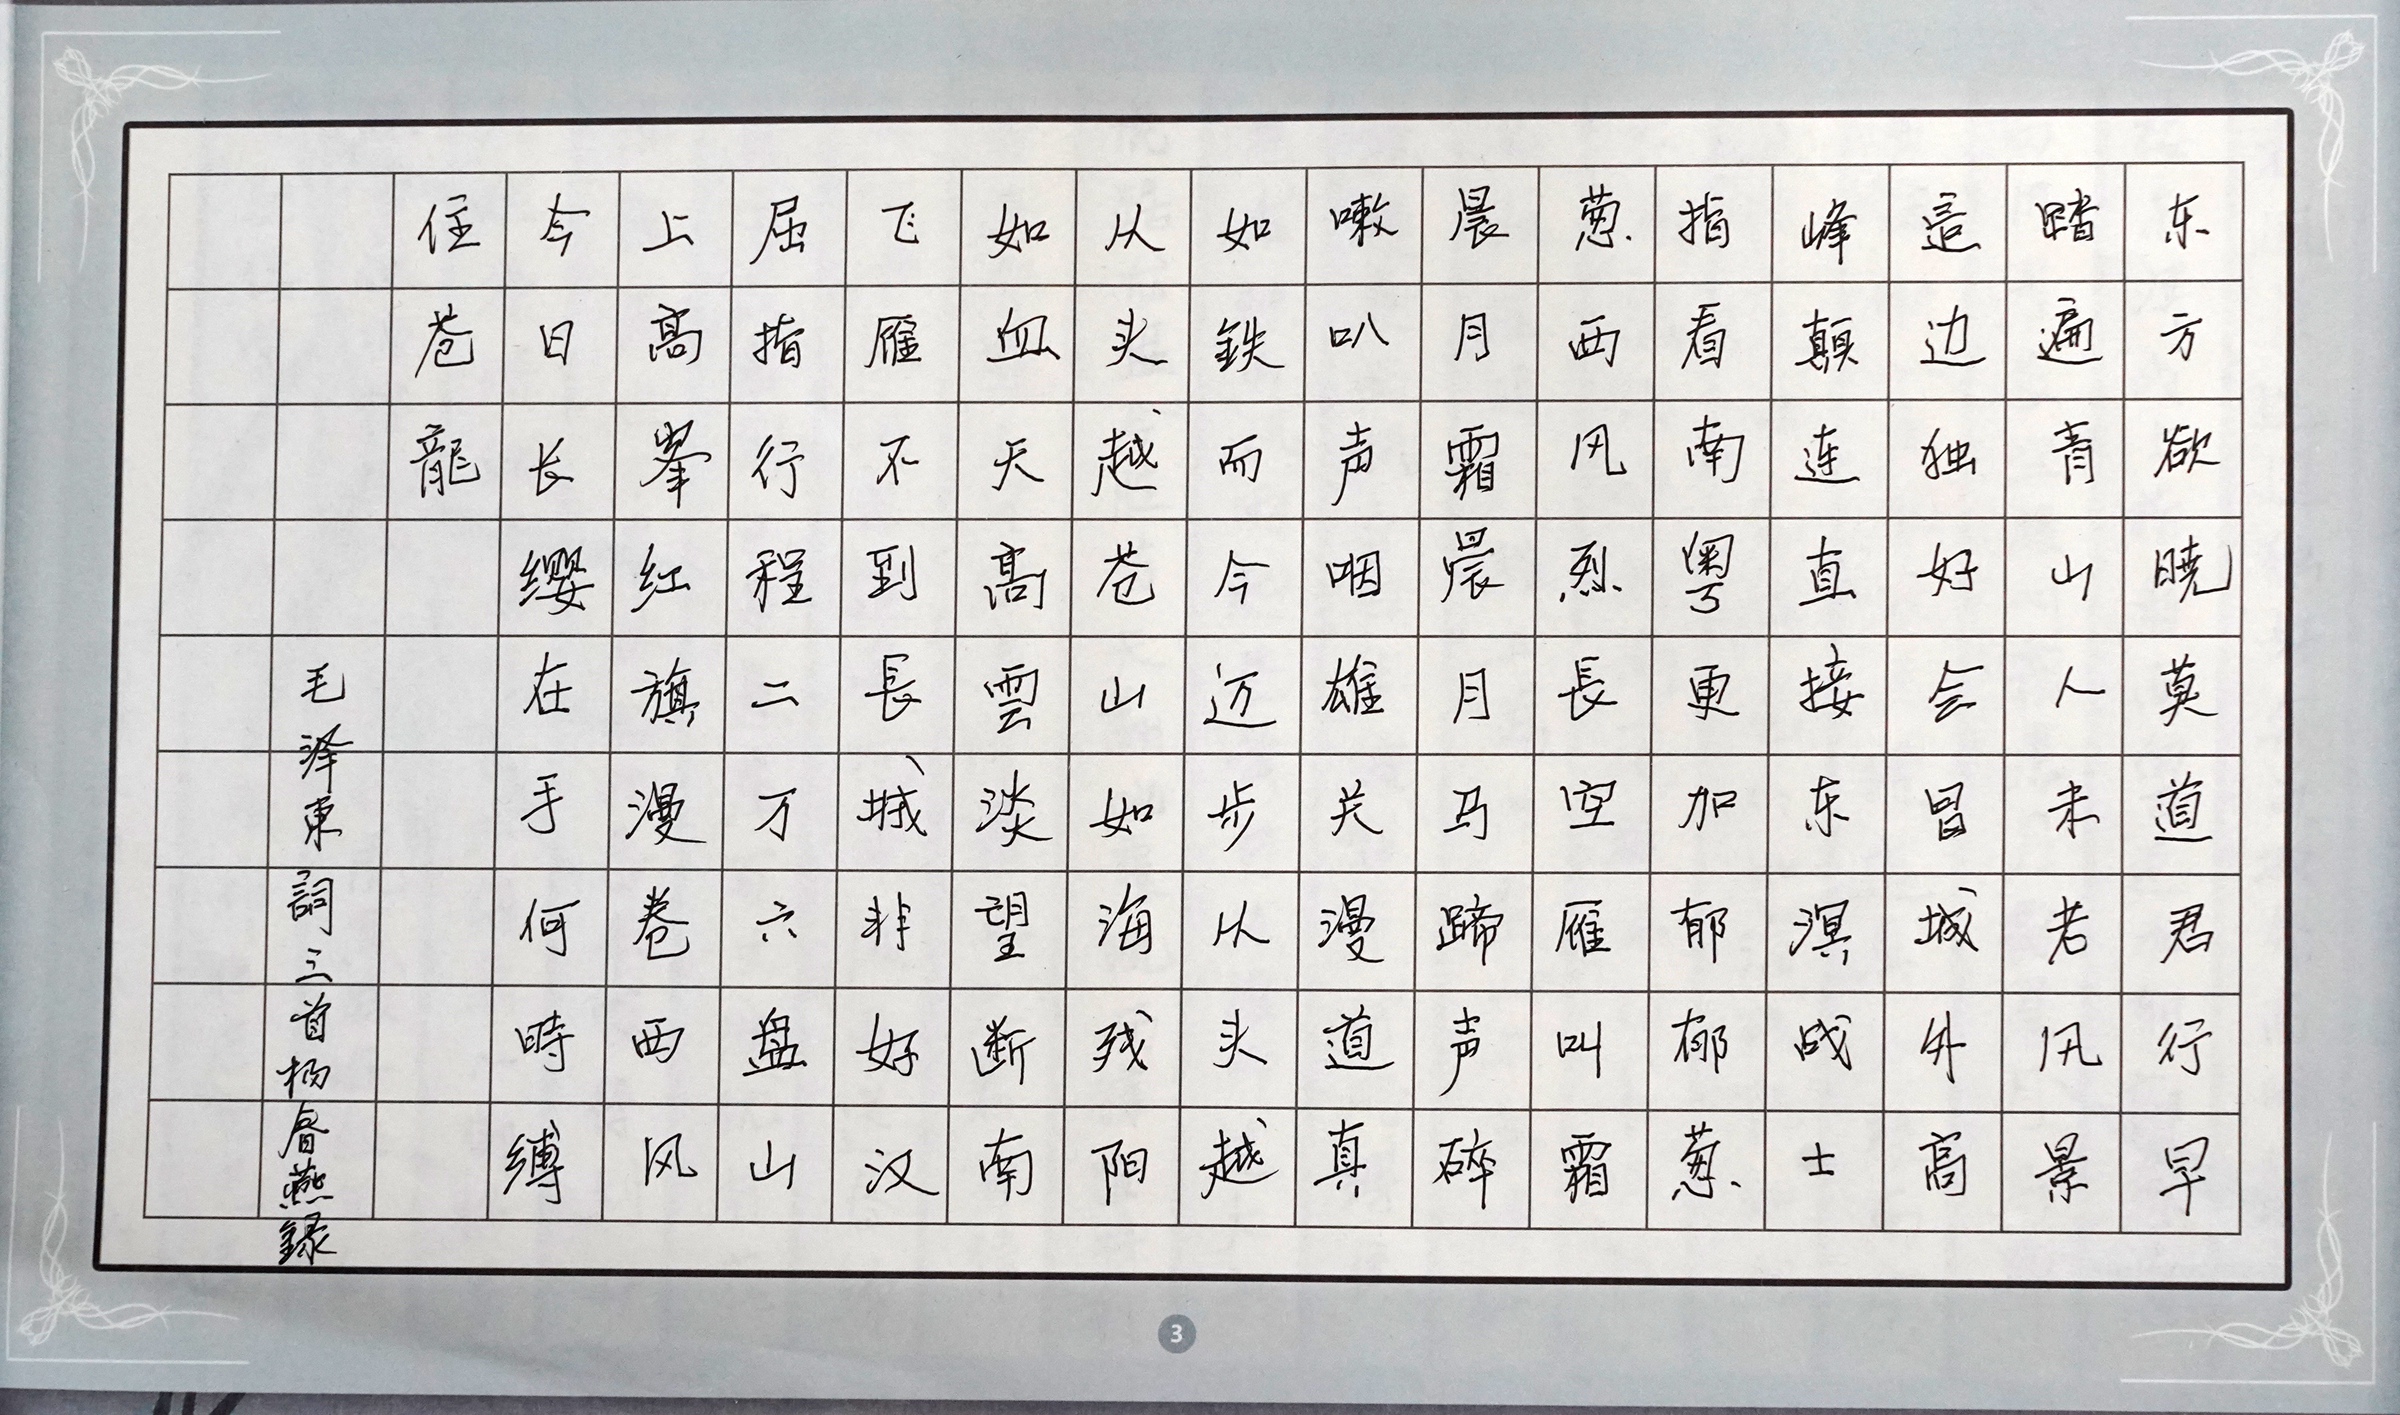 东方欲晓莫道君行早
踏遍青山人未老风景
這边独好会昌城外高
峰顛连直接东溟战士
指看南粤更加郁郁葱
葱西风烈長空雁叫霜
晨月霜晨月马蹄声碎
嗽叭声咽雄关漫道真
如鉄而今迈步从头越
从头越苍山如海残阳
如血天高雲淡望断南
飞雁不到長城非好汉
屈指行程二万六盘山
上高峯红旗漫卷西风
今日长缨在手何時缚
住苍龍
毛泽東詞三首杨眉燕録
3